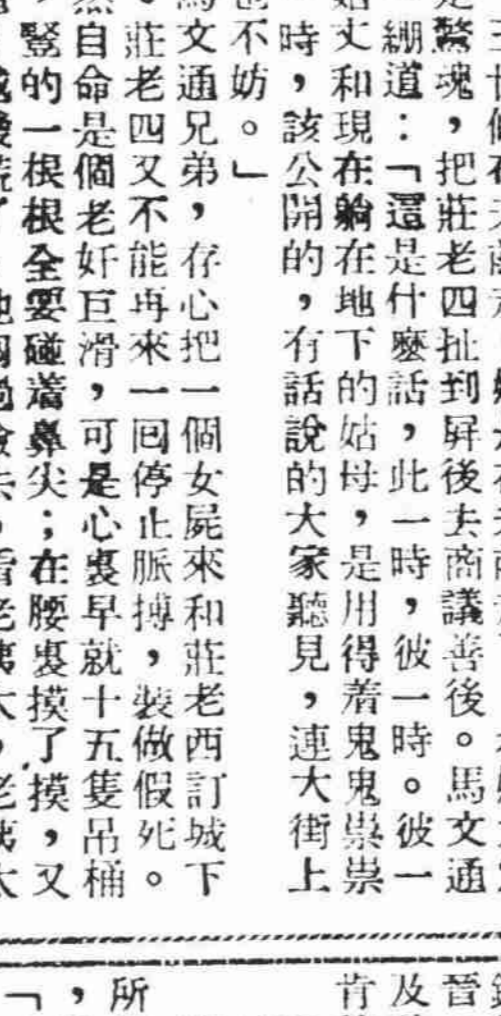 驚魂，把莊老四扯到屏後去商議善後。馬文通
繃道：「這是什麼話，此一時，彼一時。彼一
丈和現在躺在地下的姑母，是用得着鬼鬼祟祟
時，該公開的，有話說的大家聽見，連大街上
不妨。」
文通兄弟，存心把一個女屍來和莊老西訂城下
莊老四又不能再來一回停止脈搏，裝做假死。
自命是個老奸巨滑，可是心裏早就十五隻吊桶
豎的一根根全要碰着鼻尖；在腰裏摸了摸，又
晉
及
肯
所
，「